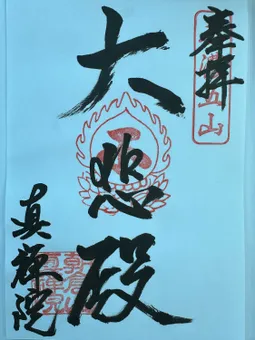 奉拝
大悲殿
真輝院